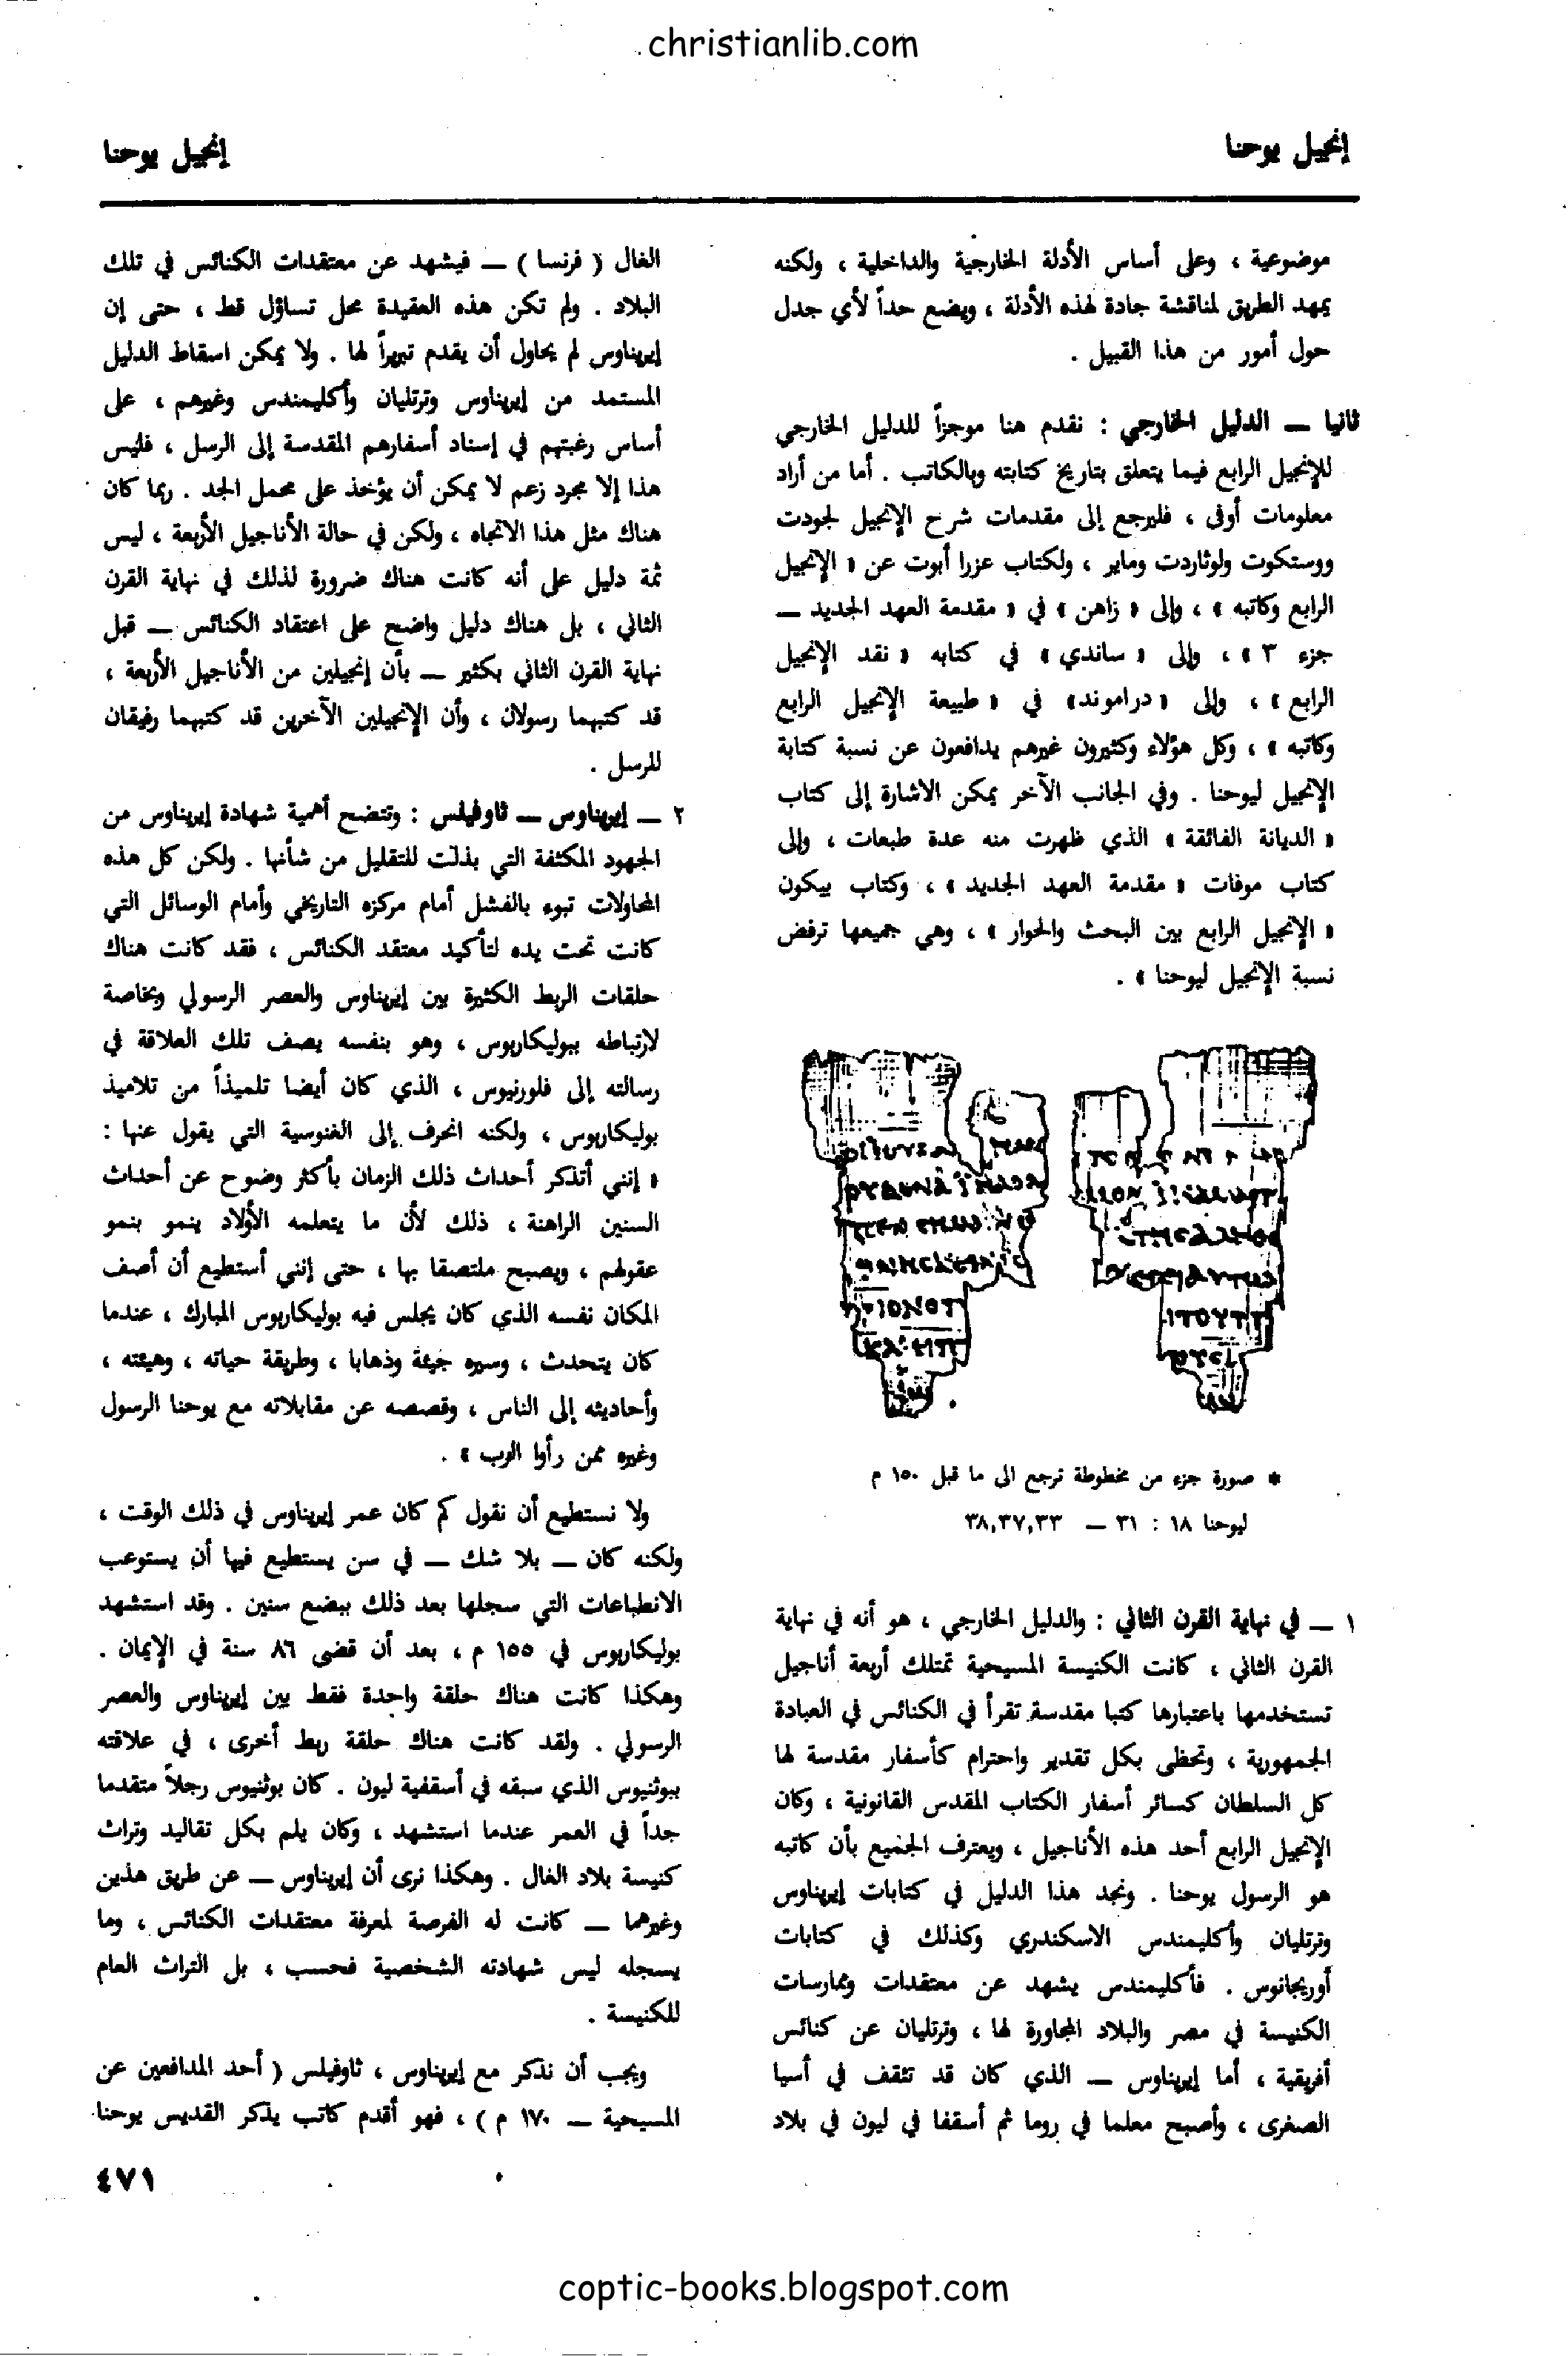 christianlib.com
إنجيل يوحنا
إنجيل يوحنا
موضوعية ، وعلى أساس الأدلة الخارجية والداخلية ، ولكنه
يمهد الطريق لمناقشة جادة لهذه الأدلة ، ويضع حداً لأي جدل
حول أمور من هذا القبيل .
ثانيا — الدليل الخارجي : نقدم هنا موجزاً للدليل الخارجي
للإنجيل الرابع فيما يتعلق بتاريخ كتابته وبالكاتب . أما من أراد
معلومات أوفى ، فليرجع إلى مقدمات شرح الإنجيل لجودت
ووستكوت ولوثاردت وماير ، ولكتاب عزرا أبوت عن « الإنجيل
الرابع وكاتبه » ، وإلى « زاهن » في « مقدمة العهد الجديد —
جزء ٣ » ، وإلى « ساندي » في كتابه « نقد الإنجيل
الرابع » ، وإلى « دراموند» في « طبيعة الإنجيل الرابع
وكاتبه » ، وكل هؤلاء وكثيرون غيرهم يدافعون عن نسبة كتابة
الإنجيل ليوحنا . وفي الجانب الآخر يمكن الاشارة إلى كتاب
« الديانة الفائقة » الذي ظهرت منه عدة طبعات ، وإلى
كتاب موفات « مقدمة العهد الجديد » ، وكتاب بيكون
« الإنجيل الرابع بين البحث والحوار » ، وهي جميعها ترفض
نسبة الإنجيل ليوحنا » .
* صورة جزء من مخطوطة ترجع الى ما قبل ١٥٠ م
ليوحنا ١٨ : ٣١ — ٣٨,٣٧,٣٣
١ — في نهاية القرن الثاني : والدليل الخارجي ، هو أنه في نهاية
القرن الثاني ، كانت الكنيسة المسيحية تمتلك أربعة أناجيل
تستخدمها باعتبارها كتبا مقدسة تقرأ في الكنائس في العبادة
الجمهورية ، وتحظى بكل تقدير واحترام كأسفار مقدسة لها
كل السلطان كسائر أسفار الكتاب المقدس القانونية ، وكان
الإنجيل الرابع أحد هذه الأناجيل ، ويعترف الجميع بأن كاتبه
هو الرسول يوحنا . ونجد هذا الدليل في كتابات إيريناوس
وترتليان وأكليمندس الاسكندري وكذلك في كتابات
أوريجانوس . فأكليمندس يشهد عن معتقدات وممارسات
الكنيسة في مصر والبلاد المجاورة لها ، وترتليان عن كنائس
أفريقية ، أما إيريناوس — الذي كان قد تثقف في أسيا
الصغرى ، وأصبح معلما في روما ثم أسقفا في ليون في بلاد
الغال ( فرنسا ) — فيشهد عن معتقدات الكنائس في تلك
البلاد . ولم تكن هذه العقيدة محل تساؤل قط ، حتى إن
إيريناوس لم يحاول أن يقدم تبريراً لها . ولا يمكن اسقاط الدليل
المستمد من إيريناوس وترتليان وأكليمندس وغيرهم ، على
أساس رغبتهم في إسناد أسفارهم المقدسة إلى الرسل ، فليس
هذا إلا مجرد زعم لا يمكن أن يؤخذ على محمل الجد . ربما كان
هناك مثل هذا الاتجاه ، ولكن في حالة الأناجيل الأربعة ، ليس
ثمة دليل على أنه كانت هناك ضرورة لذلك في نهاية القرن
الثاني ، بل هناك دليل واضح على اعتقاد الكنائس — قبل
نهاية القرن الثاني بكثير — بأن إنجيلين من الأناجيل الأربعة ،
قد كتبهما رسولان ، وأن الإنجيلين الآخرين قد كتبهما رفيقان
للرسل .
٢ — إيريناوس — ثاوفيلس : وتتضح أهمية شهادة إيريناوس من
الجهود المكثفة التي بذلت للتقليل من شأنها . ولكن كل هذه
المحاولات تبوء بالفشل أمام مركزه التاريخي وأمام الوسائل التي
كانت تحت يده لتأكيد معتقد الكنائس ، فقد كانت هناك
حلقات الربط الكثيرة بين إيريناوس والعصر الرسولي وبخاصة
لارتباطه ببوليكاربوس ، وهو بنفسه يصف تلك العلاقة في
رسالته إلى فلورنيوس ، الذي كان أيضا تلميذاً من تلاميذ
بوليكاربوس ، ولكنه انحرف إلى الغنوسية التي يقول عنها :
« إنني أتذكر أحداث ذلك الزمان بأكثر وضوح عن أحداث
السنين الراهنة ، ذلك لأن ما يتعلمه الأولاد ينمو بنمو
عقولهم ، ويصبح ملتصقا بها ، حتى إنني أستطيع أن أصف
المكان نفسه الذي كان يجلس فيه بوليكاربوس المبارك ، عندما
كان يتحدث ، وسيره جيئة وذهابا ، وطريقة حياته ، وهيئته ،
وأحاديثه إلى الناس ، وقصصه عن مقابلاته مع يوحنا الرسول
وغيره ممن رأوا الرب » .
ولا نستطيع أن نقول كم كان عمر إيريناوس في ذلك الوقت ،
ولكنه كان — بلا شك — في سن يستطيع فيها أن يستوعب
الانطباعات التي سجلها بعد ذلك ببضع سنين . وقد استشهد
بوليكاربوس في ١٥٥ م ، بعد أن قضى ٨٦ سنة في الإيمان .
وهكذا كانت هناك حلقة واحدة فقط بين إيريناوس والعصر
الرسولي . ولقد كانت هناك حلقة ربط أخرى ، في علاقته
ببوثنيوس الذي سبقه في أسقفية ليون . كان بوثنيوس رجلاً متقدما
جداً في العمر عندما استشهد ، وكان يلم بكل تقاليد وتراث
كنيسة بلاد الغال . وهكذا نرى أن إيريناوس — عن طريق هذين
وغيرهما — كانت له الفرصة لمعرفة معتقدات الكنائس ، وما
يسجله ليس شهادته الشخصية فحسب ، بل التراث العام
للكنيسة .
ويجب أن نذكر مع إيريناوس ، ثاوفيلس ( أحد المدافعين عن
المسيحية — ١٧٠ م ) ، فهو أقدم كاتب يذكر القديس يوحنا
٤٧١
coptic-books.blogspot.com